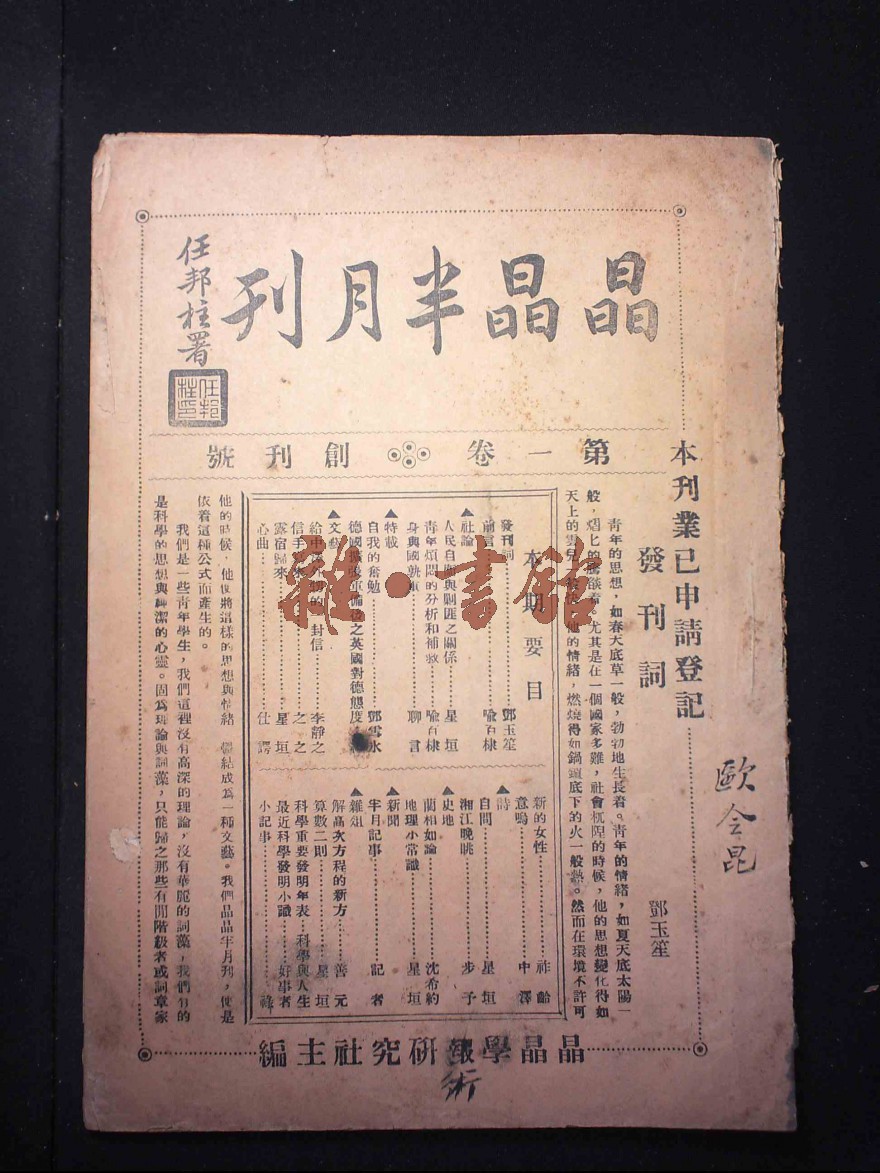 晶晶半月刊
任邦柱署
任邦柱印
第一卷 創刊號
本刊業已申請登記
發刊詞
鄧玉笙
青年的思想，如春天底草一般，勃勃地生長着。青年的情緒，如夏天底太陽一
般，熾比的騰燄着。尤其是在一個國家多難，社會杌隉的時候，他的思想變化得如
天上的雲兒一般快，他的情緒，燃燒得如鍋爐底下的火一般熱。然而在環境不許可
本期要目
發刊詞 鄧玉笙
前言 喩百棣
▲社論
人民自衛與剿匪之關係 星垣
靑年煩悶的分析和補救 喩百棣
身與國孰重 聊言
▲特載
自我的奮勉 鄧雪冰
德國擴張軍備後之英國對德態度
▲文藝
給中 的一封信 李靜之
信手寫來 之之
露宿歸來 星垣
心曲 仕諤
新的女性 祚齡
意嗚 中澤
▲詩
自問 星垣
湘江晚眺 步予
▲史地
藺相如論 沈希約
地理小常識 星垣
▲新聞
半月記事 記者
▲雜俎
解高次方程的新方 善元
算數二則 星垣
科學重要發明年表 科學與人生
最近科學發明小識 好事者
小記事 祿
他的時候，他便將這樣的思想與情緒 結成爲一種文藝。我們晶晶半月刊，便是
依着這種公式而產生的。
我們是一些靑年學生，我們這裡沒有高深的理論，沒有華麗的詞藻，我們有的
是科學的思想與純潔的心靈。因爲理論與詞藻，只能歸之那些有閒階級者或詞章家
晶晶學術研究社主編
術
歐今昆
雜·書館